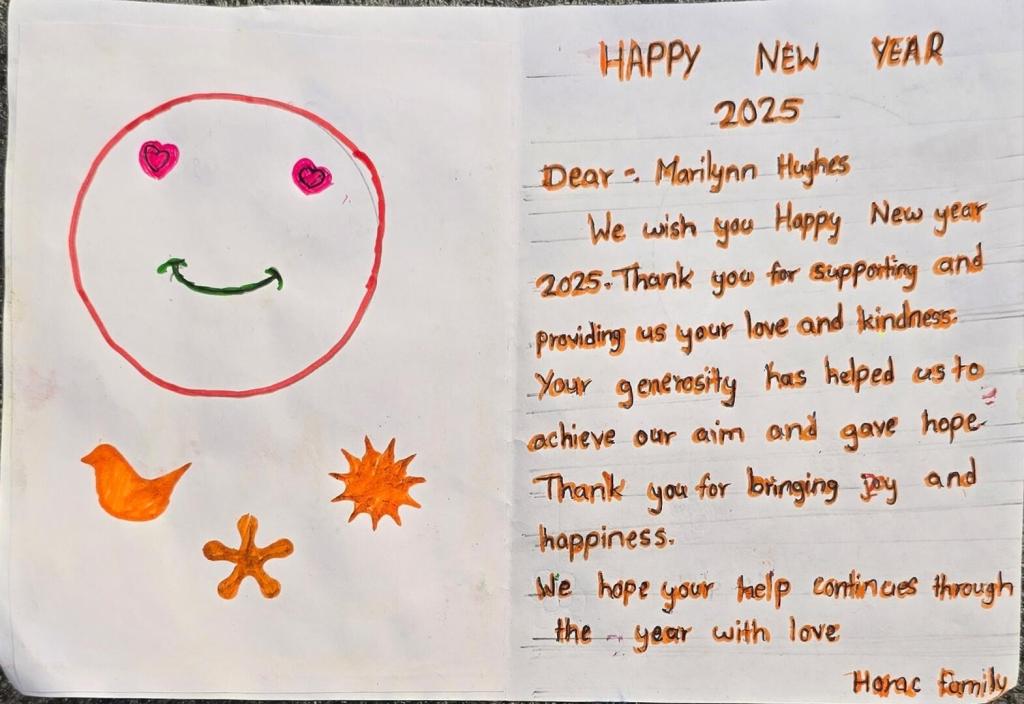 HAPPY NEW YEAR
2025
Dear -. Marilynn Hughes
We wish you Happy New year
2025. Thank you for supporting and
providing us your love and kindness.
Your generosity has helped us to
achieve our aim and gave hope.
Thank you for bringing Joy and
happiness.
We hope your help continues through
the year with love
Horac family